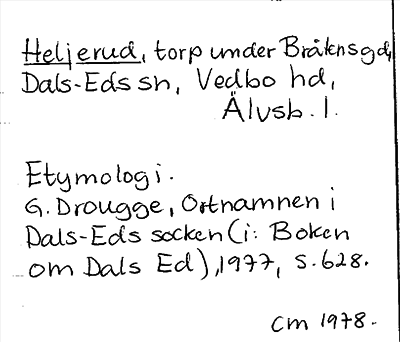 Heljerud, torp under Bräknsgd,
Dals-Eds sn, Vedbo hd,
Älvsb. l.
Etymologi.
G. Drougge, Ortnamnen i
Dals-Eds socken (i: Boken
om Dals Ed), 1977, s. 628.
CM 1978.